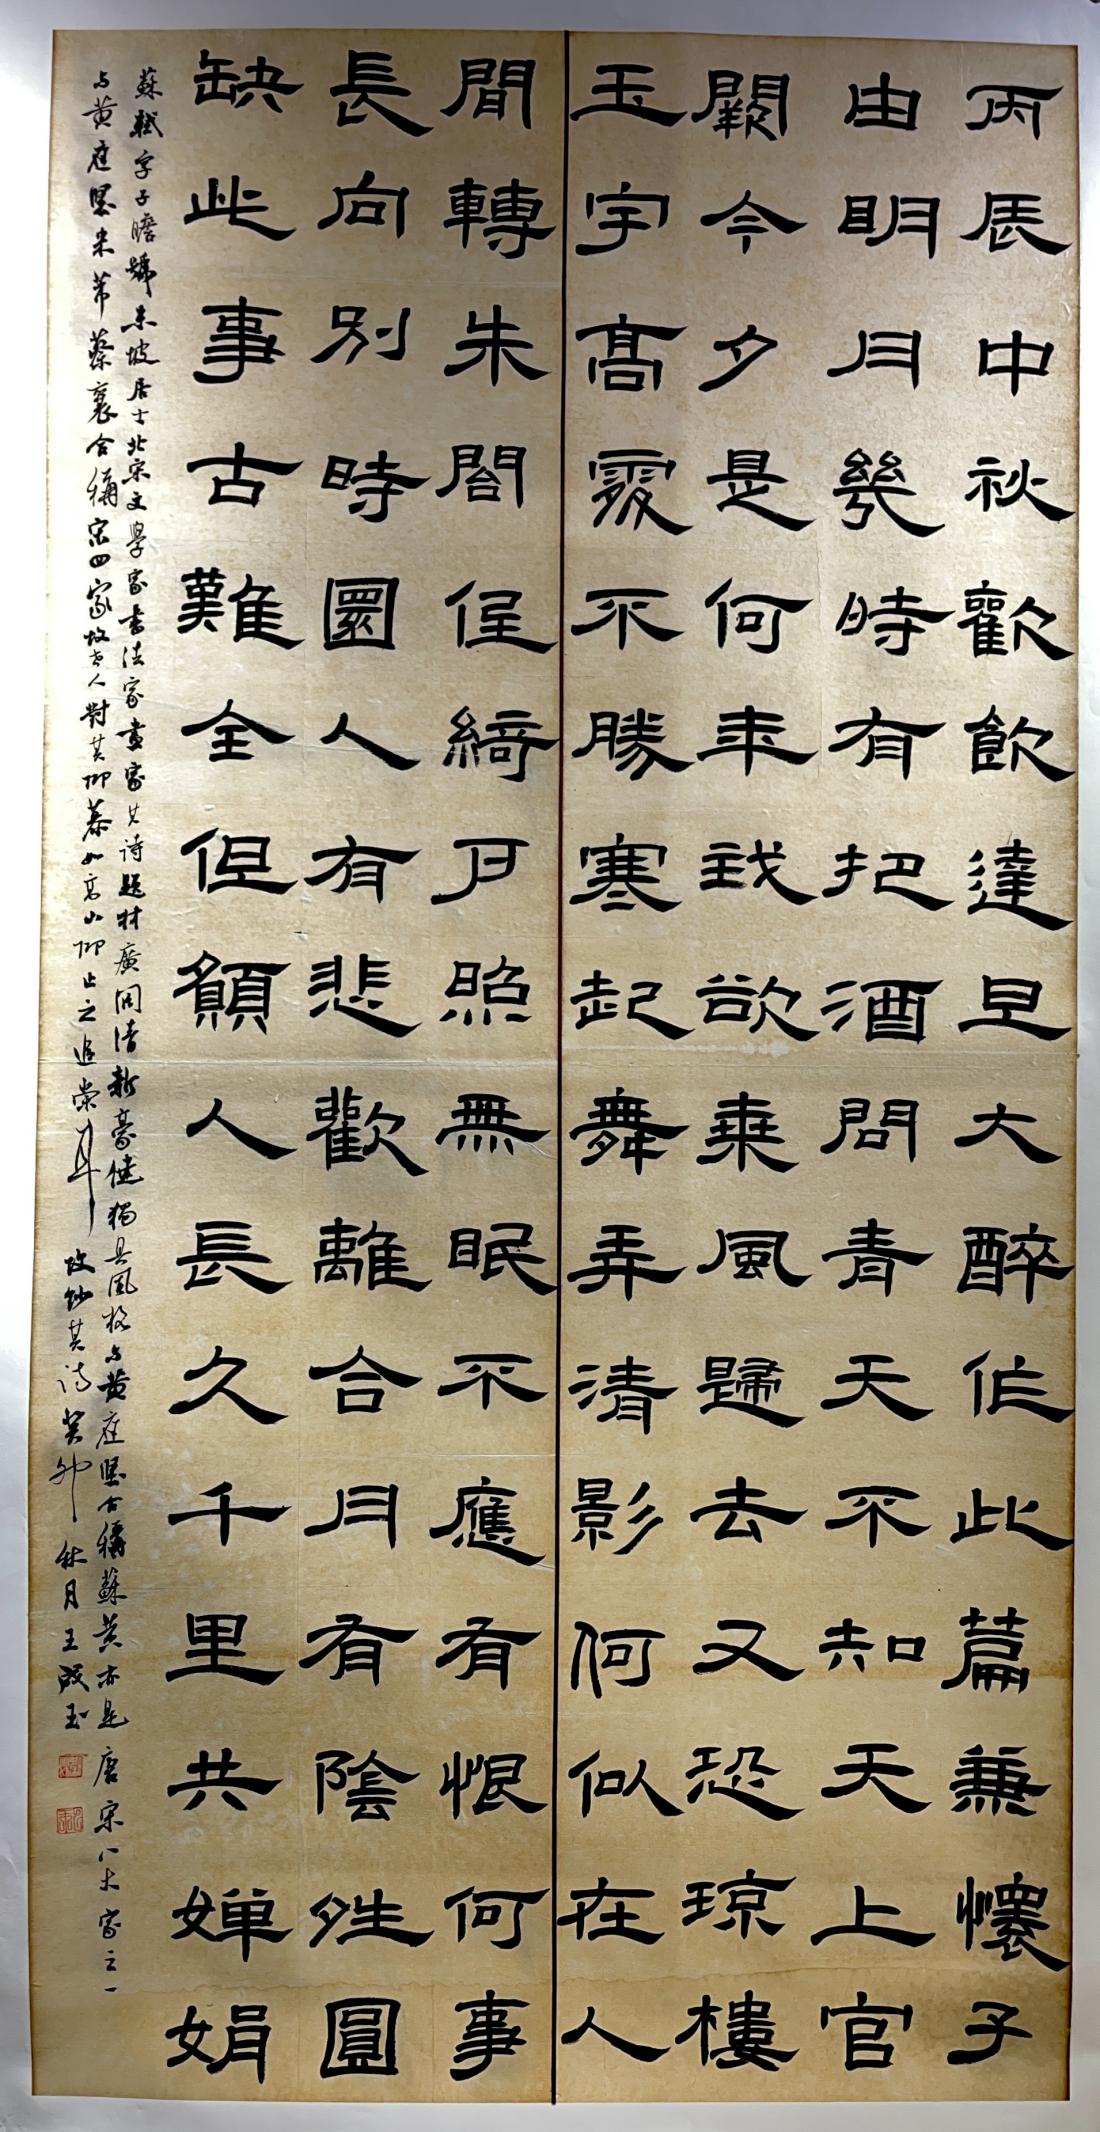 丙辰中秋歡飲達旦大醉作此篇兼懷子
由明月幾時有把酒問青天不知天上官
闕今夕是何年我欲乘風歸去又恐琼樓
玉宇高處不勝寒起舞弄清影何似在人
間轉朱閣低綺戶照無眠不應有恨何事
長向別時圓人有悲歡離合月有陰晴圓
缺此事古難全但願人長久千里共婵娟
蘇軾字子瞻號東坡居士北宋文學家書法家畫家其詩題材廣闊清新豪健獨具風格与黃庭堅合稱蘇黃亦是唐宋八大家之一
与黃庭堅米芾蔡襄合稱宋四家故世人對其仰慕如高山仰止之追崇耳故抄其詩癸卯秋月王玉